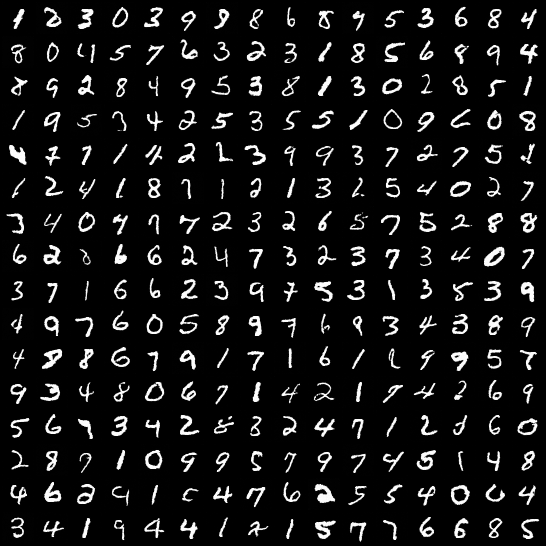 1 2 3 0 3 9 8 8 6 8 7 5 3 6 8 4
8 0 4 5 7 6 3 2 3 1 8 5 6 8 9 4
8 9 2 8 4 9 5 3 8 1 3 0 2 8 5 1
1 9 5 3 4 2 5 3 5 5 1 0 9 6 0 8
4 7 7 1 4 2 2 3 9 9 3 7 2 7 5 1
1 2 4 1 8 7 1 2 1 3 2 5 4 0 2 7
3 4 0 4 7 7 2 3 2 6 5 7 5 2 8 8
6 2 8 6 6 2 4 7 3 2 3 7 3 4 0 7
3 7 1 6 6 2 3 9 7 5 3 1 3 8 3 9
4 9 7 6 0 5 8 9 7 6 9 3 4 3 8 9
4 8 8 6 7 9 1 7 1 6 1 2 9 9 5 7
9 3 4 8 0 6 7 1 4 2 1 7 4 2 6 9
5 6 9 3 4 2 8 3 2 4 7 1 2 6 0
2 8 7 1 0 9 9 5 7 9 7 4 5 1 4 8
4 6 2 9 1 4 7 6 2 5 5 4 0 0 4
3 4 1 9 4 4 1 2 1 5 7 7 6 6 8 5